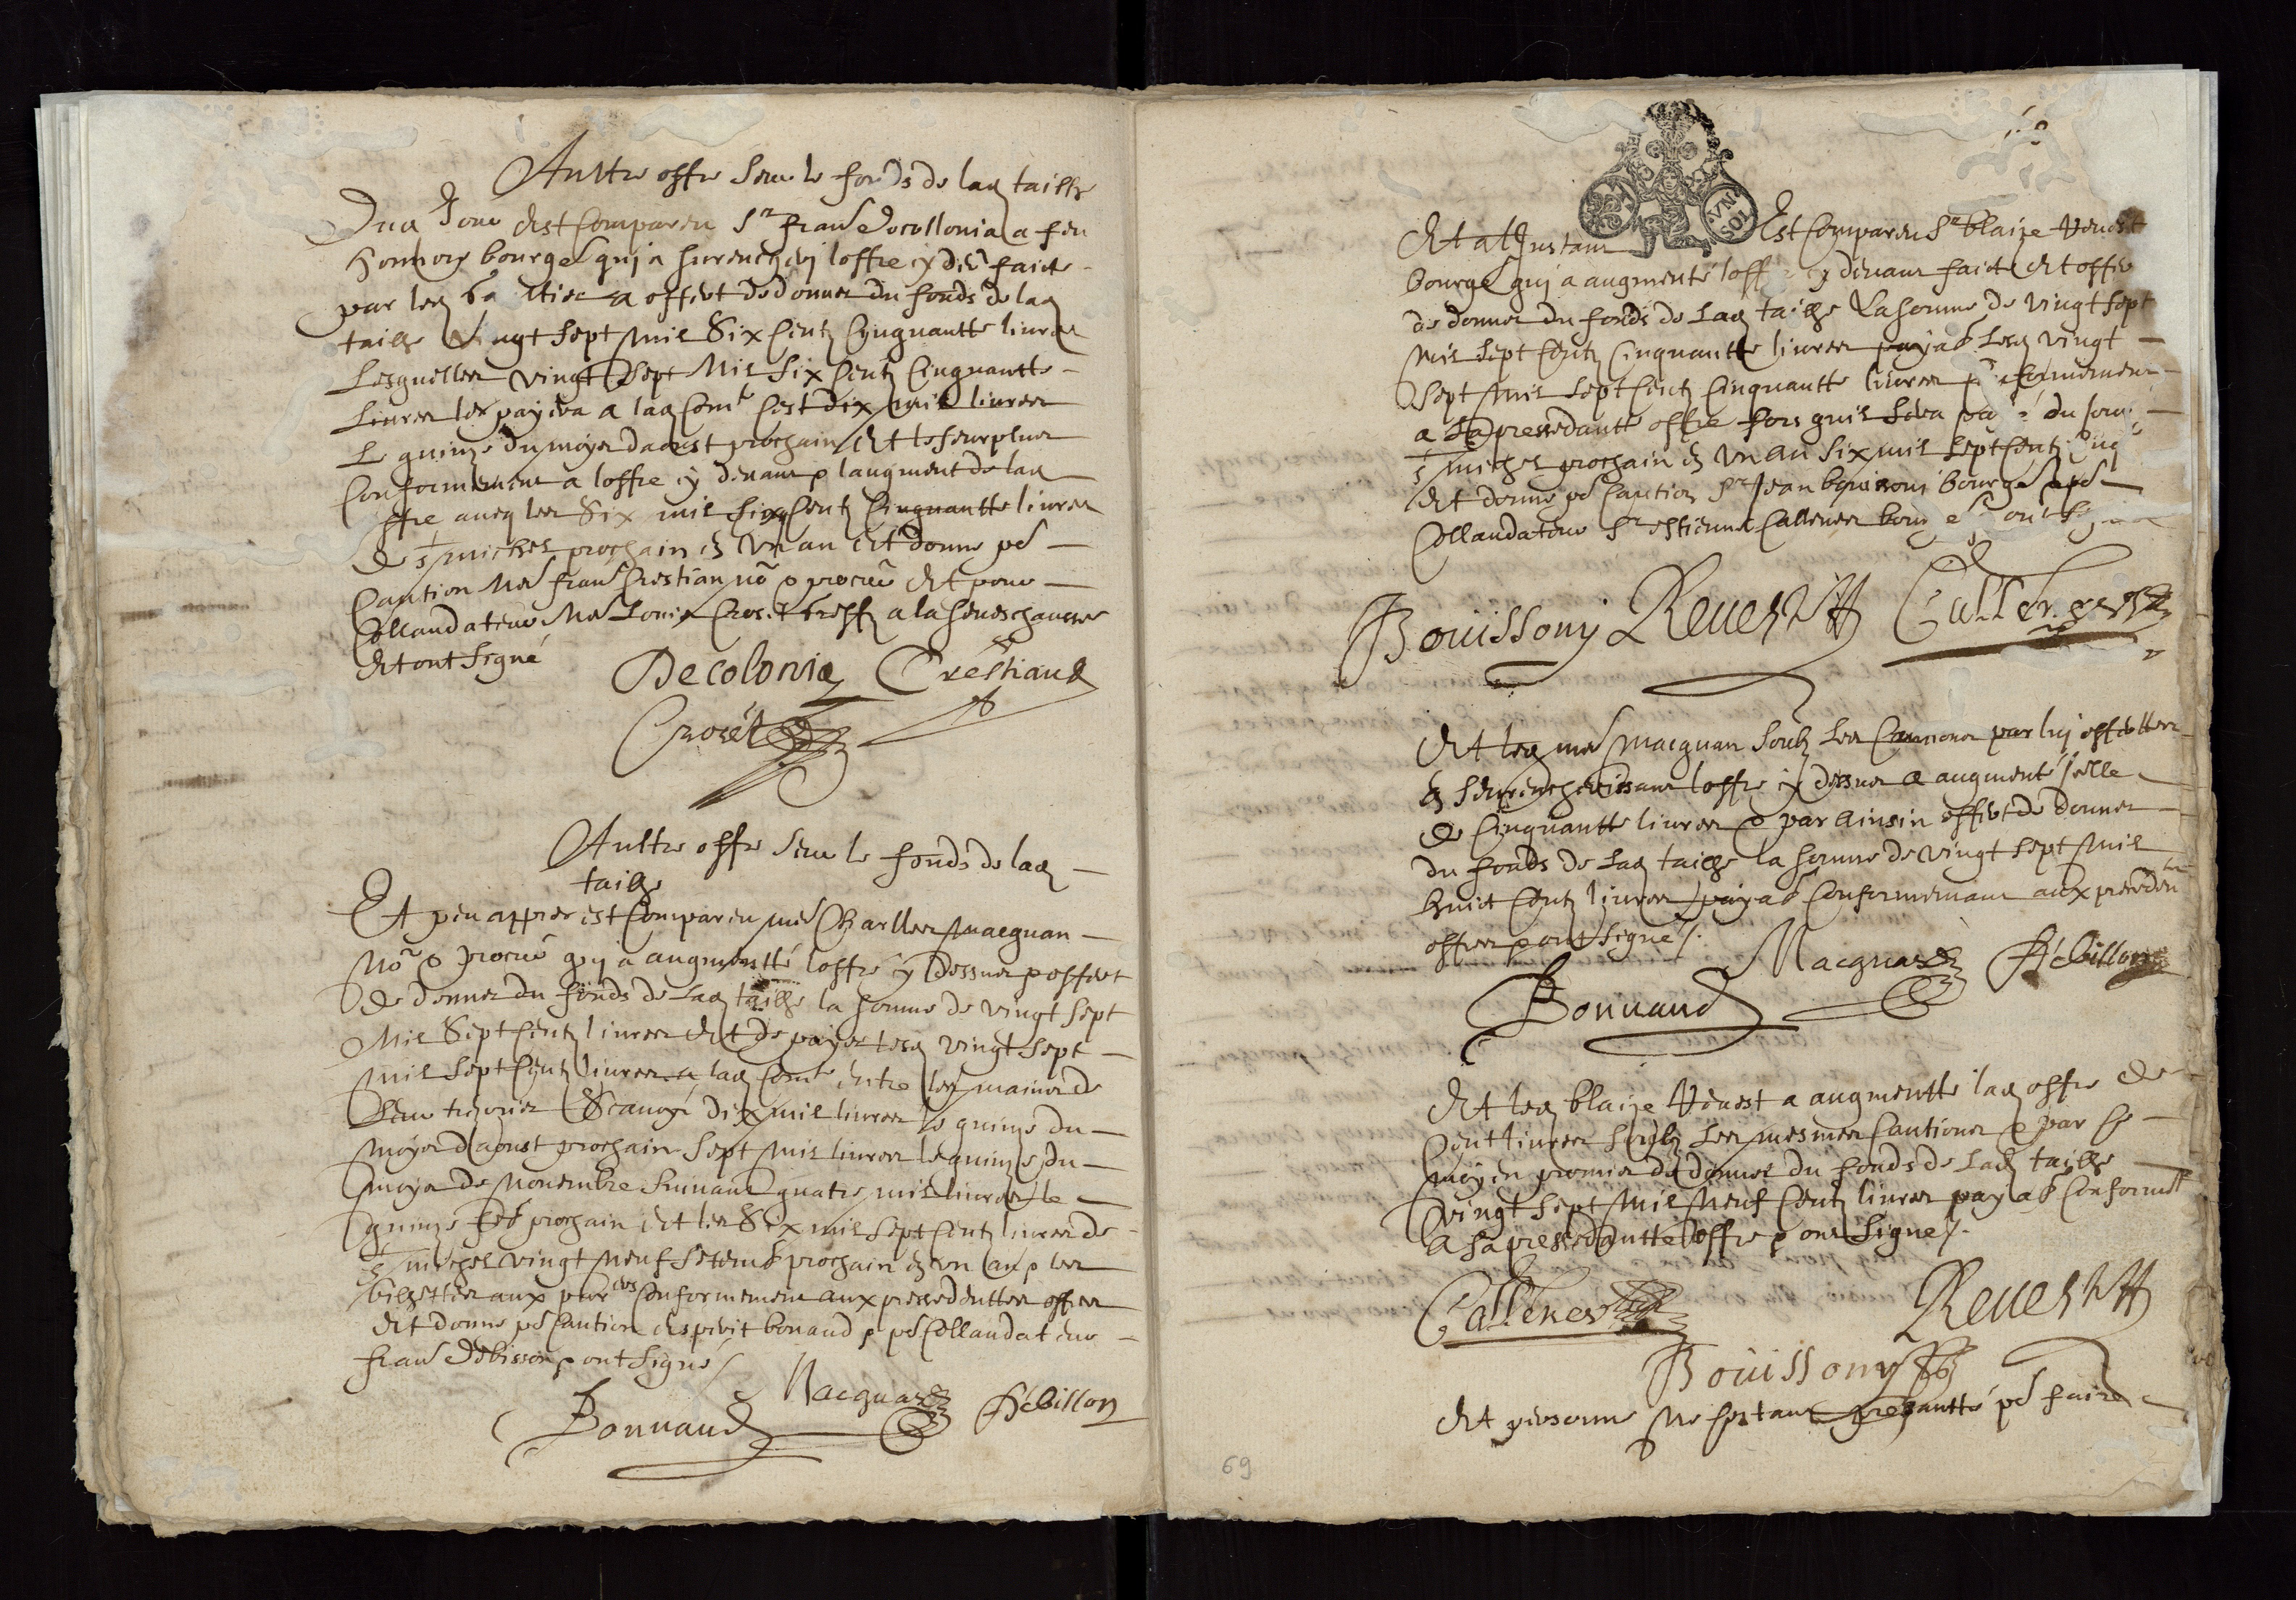 Aultre offre seur le fonds de lad taille
Dud Jour est Compareu Sr frans decollonia a feu
honnore bourges quj a surencherj loffre cy devt faicte
par led et offert de donner du fonds de lad
taille vingt sept mil Six Centz Cinquantte livres
Lesquelles vingt sept Mil Six Centz Cinquantte
Livres les payera a lad Comté cest dix mil livres
Le quinze du moys daoust prochain et le seurplus
Conformement a loffre cy devant & laugment de lad
offre aueq les Six mil six Centz Cinquantte livres
de st michel prochain en vn an et donne pr
Caution Me frans Crestian nore & procur et pour
Collaudateur Me Louis Croset greff a la seneschaussee
et ont signé
Decolonia Crestiand
Croset
Aultre offre seur le fonds de lad
taille
Et peu appres est Compareu me Charlles Macquan
Nore & procur quj a augmentté loffre cy dessus & offert
de donner du fonds de lad taille la somme de vingt sept
Mil Sept Centz livres et de payer lesd vingt sept
mil sept Centz livres a lad Comté entre les mains de
leur trezorier Scauoir dix mil livres le quinze du
moys daoust prochain sept mil livres le quinze du
moys de Novembre suivant quatre mil livres le
quinze feb prochain et les Six mil sept Centz livres de
st michel vingt neuf setemb prochain en vn an & les
billettes aux pures Conformement aux pressedentes offres
et donne pr Caution esperit bonaud & pr Collaudateur
frans debisson & ont signé
Macquan Rebillon
Bonnaud
Et a linstant Est Compareu Sr blaize Reuest
bourges quj a augmenté loffre cy devant faicte et offre
de donner du fonds de lad taille La somme de vingt sept
mil sept Centz Cinquantte livres payab lesd vingt
sept mil sept Centz Cinquantte livres conformement
a la pressedantte offre fors quil sera du jour
st michel prochain en vn an six mil sept Centz
et donne pr Caution Sr Jean bouissonj bourges & pr
Collaudateur Sr estienne Callenes bourges ont signe
Bouissony Reuest Callenes
Et led me Macquan soubz les Cautions par luj offerttes
en seurencherissant loffre cy dessus a augmenté jcelle
de Cinquantte livres & par ainsin offert de donner
du fonds de lad taille la somme de vingt sept mil
huict Centz livres payab Conformemant aux precedentes
offres & ont signé /.
Macquan Rebillon
Bonnaud
Et led blaize Reuest a augmentté lad offre de
Cent livres soubz les mesmes Cautions & par ce
moyen promet de donner du fonds de lad taille
vingt sept mil Neuf Centz livres payab Conformt
a la pressedantte offre & ont signé /.
Callenes Reuest
Bouissony
Et personne ne sestant prezantté pr faire
69